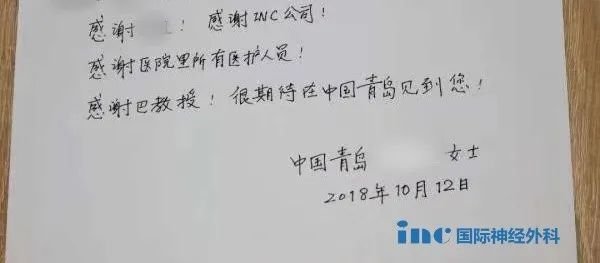 感谢 ！ 感谢INC公司！
感谢医院里所有医护人员！
感谢巴教授！很期待在中国青岛见到您！
中国青岛 女士
2018年10月12日
inc 国际神经外科